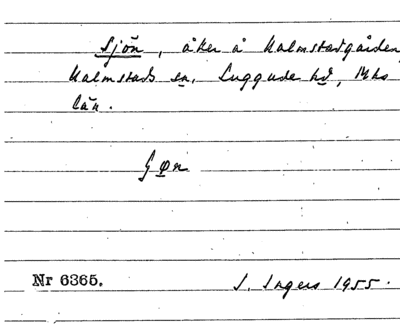 Sjön, åker å Kalmstadgården,
Kalmstads sn, Luggude hd, Mhs
län.
ʃøn
Nr 6365.
S. Ingers 1955.